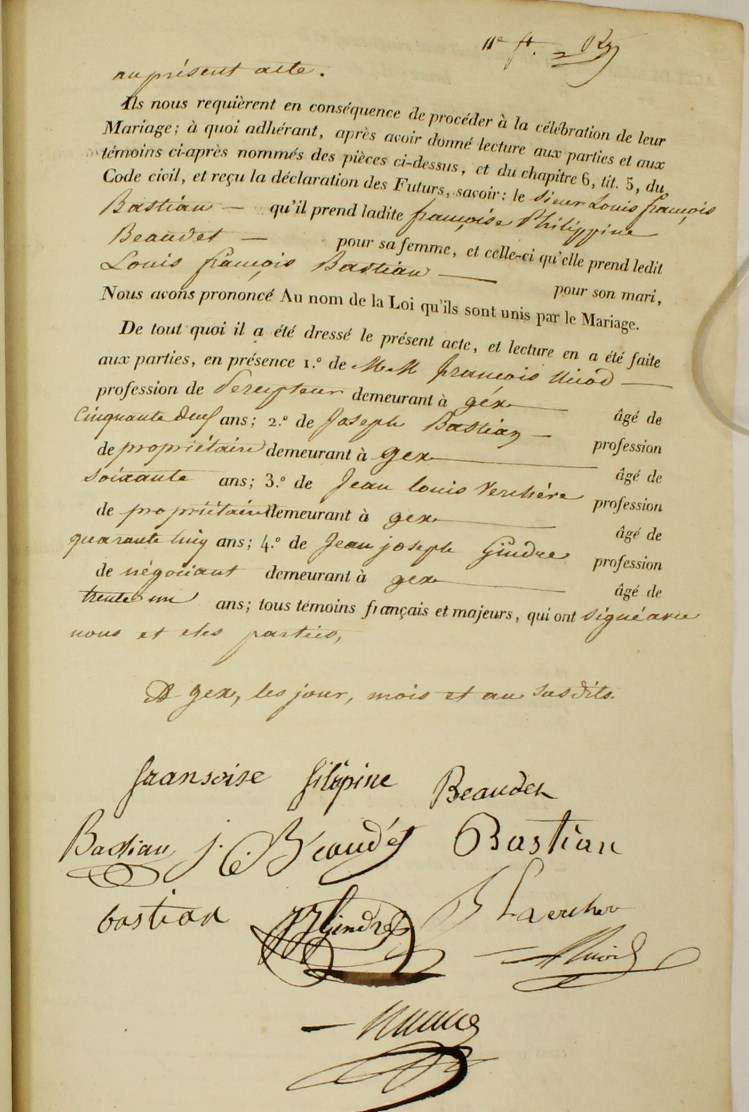 au présent acte.
Ils nous requièrent en conséquence de procéder à la célébration de leur
Mariage; à quoi adhérant, après avoir donné lecture aux parties et aux
témoins ci-après nommés des pièces ci-dessus, et du chapitre 6, tit. 5, du
Code civil, et reçu la déclaration des Futurs, savoir: le sieur Louis françois
Bastian — qu'il prend ladite françoise Philippine
Beaudet — pour sa femme, et celle-ci qu'elle prend ledit
Louis françois Bastian — pour son mari,
Nous avons prononcé Au nom de la Loi qu'ils sont unis par le Mariage.
De tout quoi il a été dressé le présent acte, et lecture en a été faite
aux parties, en présence 1.º de M M françois Nicod —
profession de Percepteur demeurant à gex — âgé de
Cinquante Neuf ans; 2.º de Joseph Bastian — profession
de propriétaire demeurant à gex — âgé de
soixante ans; 3.º de Jean Louis Verchère profession
de propriétaire demeurant à gex — âgé de
quarante cinq ans; 4.º de Jean joseph Gindre profession
de négociant demeurant à gex — âgé de
trente un ans; tous témoins français et majeurs, qui ont signé avec
nous et les parties,
A gex, les jour, mois et an susdits.
fransoise filipine Beaudet
Bastian j. C. Beaudet Bastian
bastian JJ Gindre
Nicod